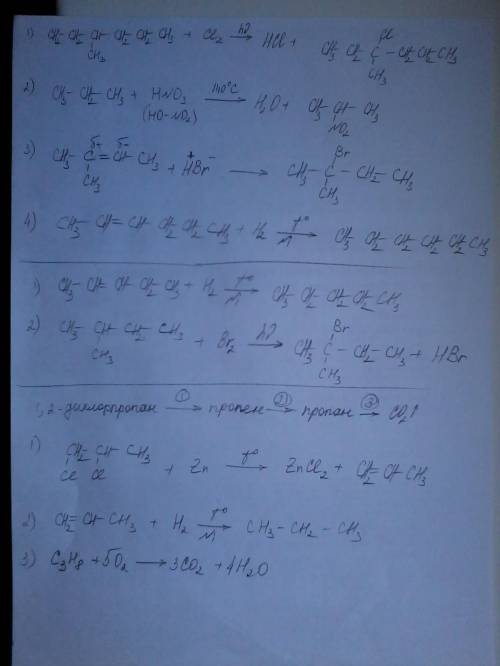 1) CH3 CH2 CH CH2 CH2 CH3 + Cl2 hν→ HCl + CH3 CH2 C CH2 CH2 CH3
CH3
Cl
CH3
2) CH3 - CH2 - CH3 + HNO3 140°C→ H2O + CH3 CH - CH3
(HO-NO2)
NO2
3) CH3 - C = CH - CH3 + HBr → CH3 - C - CH2 - CH3
δ+ δ-
+ -
Br
CH3
CH3
4) CH3 - CH = CH CH2 CH2 CH3 + H2 t° Ni→ CH3 CH2 CH2 CH2 CH2 CH3
1) CH3 - CH = CH CH2 CH3 + H2 t° Ni→ CH3 CH2 CH2 CH2 CH3
2) CH3 - CH - CH2 - CH3 + Br2 hν→ CH3 C - CH2 - CH3 + HBr
CH3
Br
CH3
1,2-дихлорпропан ①→ пропен ②→ пропан ③→ CO2↑
1) CH2 - CH - CH3 + Zn t°→ ZnCl2 + CH2 = CH CH3
Cl Cl
2) CH2 = CH - CH3 + H2 t° Ni→ CH3 - CH2 - CH3
3) C3H8 + 5O2 → 3CO2 + 4H2O